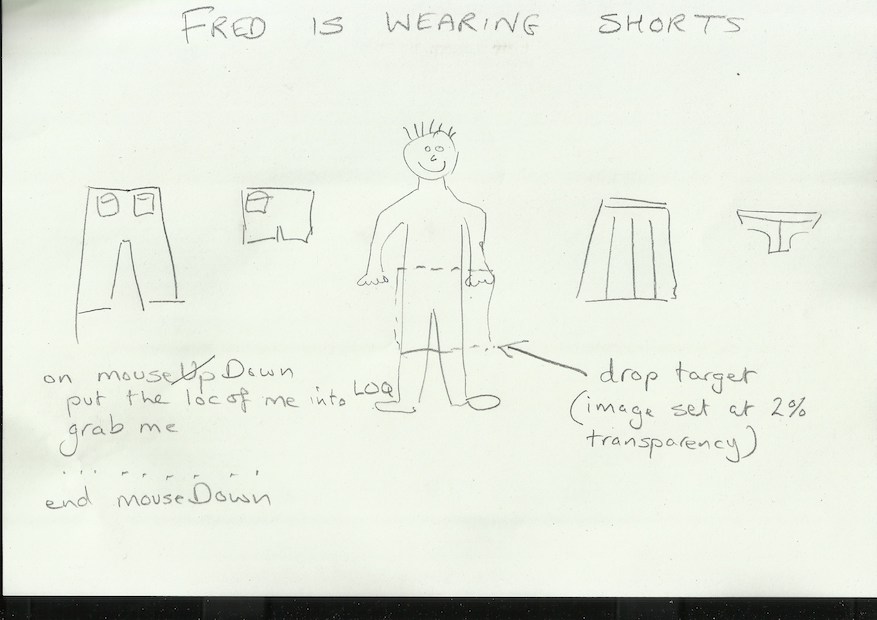 FRED IS WEARING SHORTS
on mouse Up Down
put the loc of me into LOQ
grab me
.........
end mouseDown
drop target
(image set at 2%
transparency)